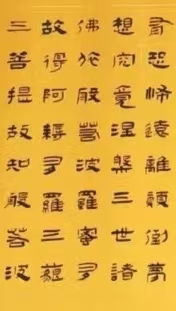 有恐怖遠離顛倒夢
想究竟涅槃三世諸
佛依般若波羅蜜多
故得阿耨多羅三藐
三菩提故知般若波